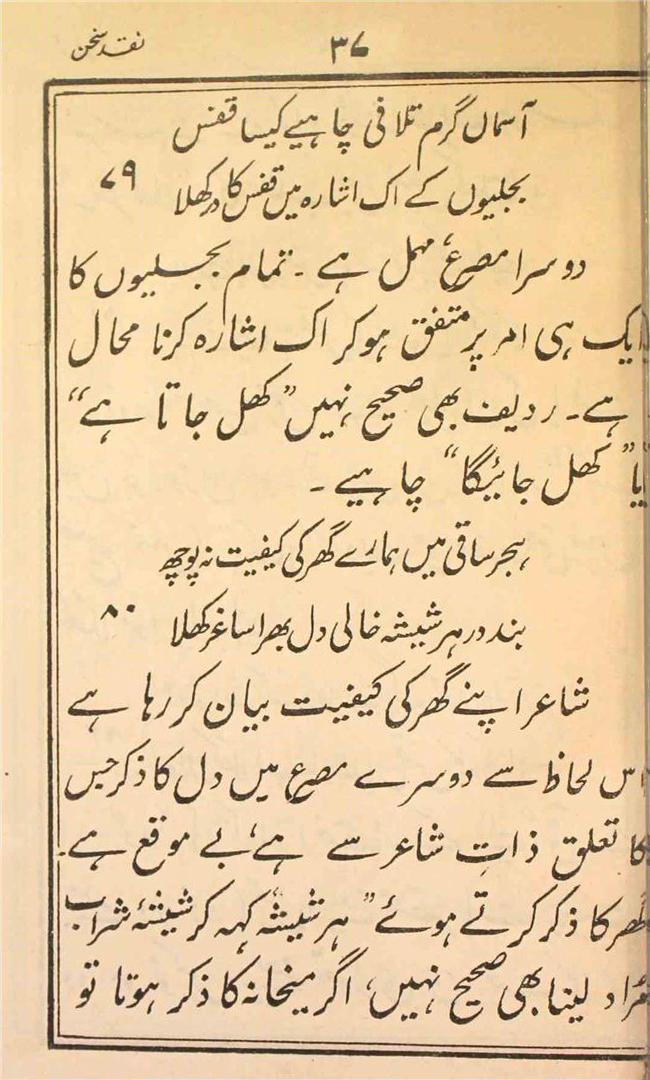 نقد سخن
۳۷
آسماں گرم تلافی چاہیے کیسا قفس
بجلیوں کے اک اشارہ میں قفس کا در کھلا ۷۹
دوسرا مصرع مہمل ہے ۔ تمام بجلیوں کا
ایک ہی امر پر متفق ہوکر اک اشارہ کرنا محال
ہے۔ ردیف بھی صحیح نہیں ”کھل جاتا ہے“
یا ”کھل جائیگا“ چاہیے ۔
ہجر ساقی میں ہمارے گھر کی کیفیت نہ پوچھ
بند در ہر شیشہ خالی دل بھرا ساغر کھلا ۸۰
شاعر اپنے گھر کی کیفیت بیان کر رہا ہے
اس لحاظ سے دوسرے مصرع میں دل کا ذکر جس
کا تعلق ذاتِ شاعر سے ہے، بے موقع ہے۔
گھر کا ذکر کرتے ہوئے ”ہر شیشہ“ کہہ کر شیشۂ شراب
مراد لینا بھی صحیح نہیں، اگر میخانہ کا ذکر ہوتا تو